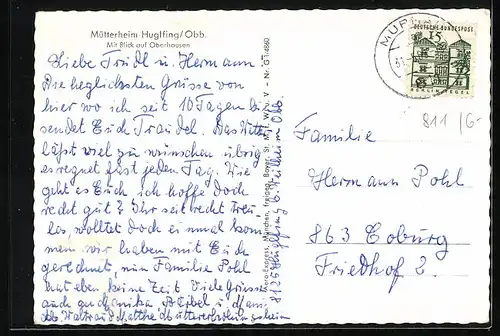 Mütterheim Huglfing/Obb.
Mit Blick auf Oberhausen
Liebe Trudl u. Hermann
Die herzlichsten Grüsse von
hier wo ich seit 10 Tagen bin
sendet Euch Traudel. Das Wetter
läßt viel zu wünschen übrig
es regnet fast jeden Tag. Wie
geht es Euch ich hoffe doch
recht gut? Ihr seit recht treu
los, wolltet doch einmal kom
men wir haben mit Euch
gerechnet, nun Familie Pohl
hat eben keine Zeit. Viele Grüsse
auch an Monika
DEUTSCHE BUNDESPOST
15
BERLIN-TEGEL
MURNAU
811 /G-
Familie
Hermann Pohl
863 Coburg
Friedhof 2.